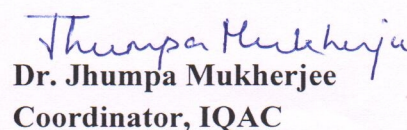 Jhumpa Mukherjee
Dr. Jhumpa Mukherjee
Coordinator, IQAC